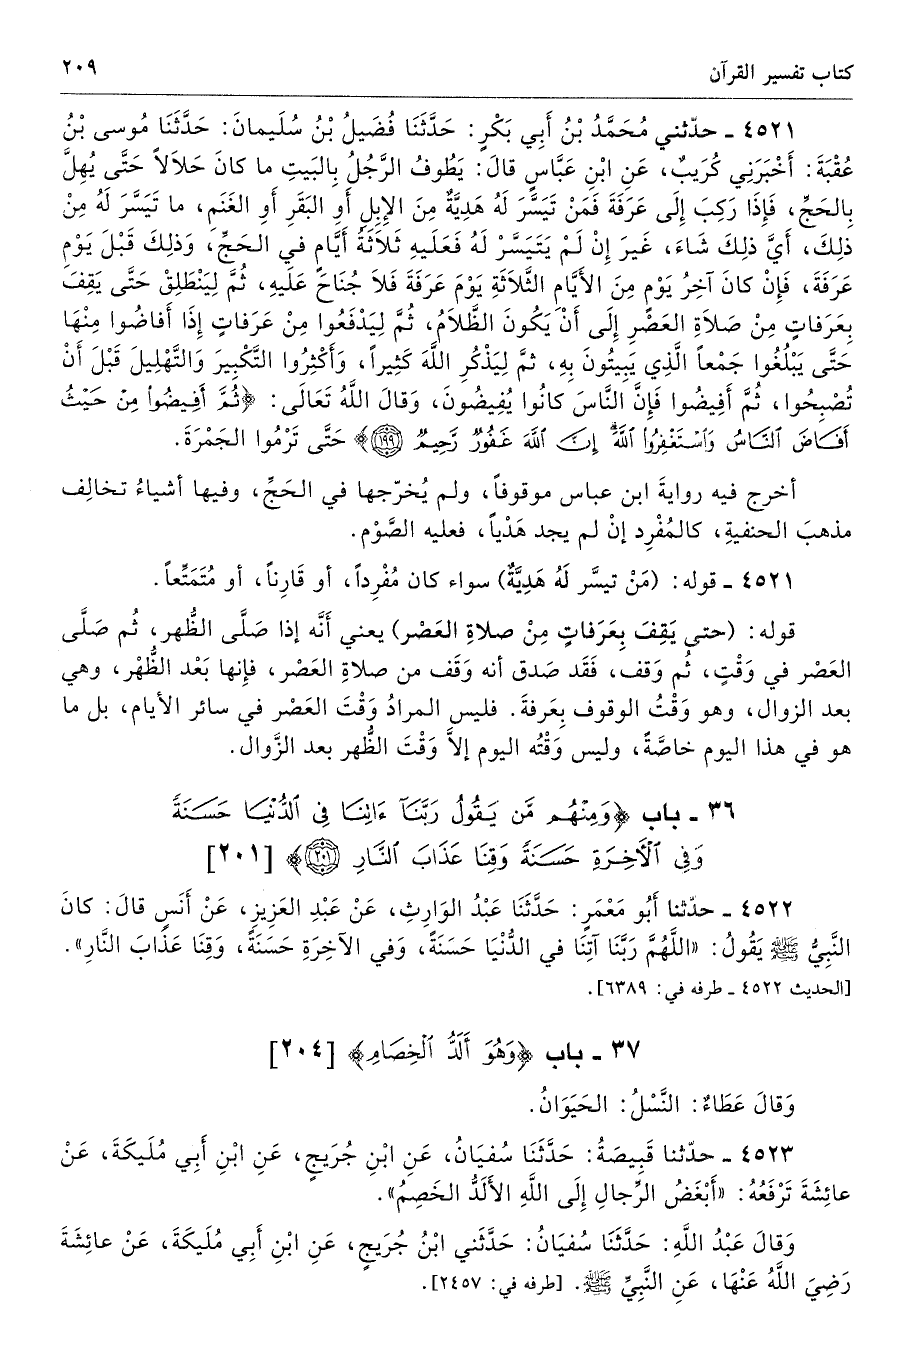 كتاب تفسير القرآن ٢٠٩
٤٥٢١ ـ حدّثني مُحَمَّدُ بْنُ أَبِي بَكْرٍ: حَدَّثَنَا فُضَيلُ بْنُ سُلَيمانَ: حَدَّثَنَا مُوسى بْنُ
عُقْبَةَ: أَخْبَرَنِي كُرَيبٌ، عَنِ ابْنِ عَبَّاسٍ قالَ: يَطُوفُ الرَّجُلُ بِالبَيتِ ما كانَ حَلاَلاً حَتَّى يُهِلَّ
بِالحَجِّ، فَإِذَا رَكِبَ إِلَى عَرَفَةَ فَمَنْ تَيَسَّرَ لَهُ هَدِيَّةٌ مِنَ الإِبِلِ أَوِ البَقَرِ أَوِ الغَنَمِ، ما تَيَسَّرَ لَهُ مِنْ
ذلِكَ، أَيَّ ذلِكَ شَاءَ، غَيرَ إِنْ لَمْ يَتَيَسَّرْ لَهُ فَعَلَيهِ ثَلاَثَةُ أَيَّامٍ في الحَجِّ، وَذلِكَ قَبْلَ يَوْمِ
عَرَفَةَ، فَإِنْ كانَ آخِرُ يَوْمٍ مِنَ الأَيَّامِ الثَّلاَثَةِ يَوْمَ عَرَفَةَ فَلاَ جُنَاحَ عَلَيهِ، ثُمَّ لِيَنْطَلِقْ حَتَّى يَقِفَ
بِعَرَفاتٍ مِنْ صَلاَةِ العَصْرِ إِلَى أَنْ يَكُونَ الظَّلاَمُ، ثُمَّ لِيَدْفَعُوا مِنْ عَرَفاتٍ إِذَا أَفاضُوا مِنْهَا
حَتَّى يَبْلُغُوا جَمْعاً الَّذِي يَبِيتُونَ بِهِ، ثمَّ لِيَذْكُرِ اللَّهَ كَثِيراً، وَأَكْثِرُوا التَّكْبِيرَ وَالتَّهْلِيلَ قَبْلَ أَنْ
تُصْبِحُوا، ثُمَّ أَفِيضُوا فَإِنَّ النَّاسَ كانُوا يُفِيضُونَ، وَقالَ اللَّهُ تَعَالَى: ﴿ثُمَّ أَفِيضُواْ مِنْ حَيْثُ
أَفَاضَ النَّاسُ وَاسْتَغْفِرُواْ اللَّهَ إِنَّ اللَّهَ غَفُورٌ رَّحِيمٌ ١٩٩﴾ حَتَّى تَرْمُوا الجَمْرَةَ.
أخرج فيه روايةَ ابن عباس موقوفاً، ولم يُخرّجها في الحَجِّ، وفيها أشياءُ تخالِف
مذهبَ الحنفيةِ، كالمُفْرِد إنْ لم يجد هَدْياً، فعليه الصَّوْم.
٤٥٢١ ـ قوله: (مَنْ تيسَّر لَهُ هَدِيَّةٌ) سواء كان مُفْرِداً، أو قَارِناً، أو مُتَمَتِّعاً.
قوله: (حتى يَقِفَ بِعَرَفاتٍ مِنْ صلاةِ العَصْر) يعني أَنَّه إذا صَلَّى الظُّهر، ثُم صَلَّى
العَصْر في وَقْتٍ، ثُم وَقف، فَقَد صَدق أنه وَقَف من صلاةِ العَصْر، فإِنها بَعْد الظُّهْر، وهي
بعد الزوال، وهو وَقْتُ الوقوف بِعَرفةَ. فليس المرادُ وَقْتَ العَصْر في سائر الأيام، بل ما
هو في هذا اليوم خاصَّةً، وليس وَقْتُه اليوم إلاَّ وَقْتَ الظُّهر بعد الزَّوال.
٣٦ ـ باب ﴿وَمِنْهُم مَّن يَقُولُ رَبَّنَآ ءَاتِنَا فِي الدُّنْيَا حَسَنَةً
وَفِي الْآخِرَةِ حَسَنَةً وَقِنَا عَذَابَ النَّارِ ٢٠١﴾ [٢٠١]
٤٥٢٢ ـ حدّثنا أَبُو مَعْمَرٍ: حَدَّثَنَا عَبْدُ الوَارِثِ، عَنْ عَبْدِ العَزِيزِ، عَنْ أَنَسٍ قالَ: كانَ
النَّبِيُّ ﷺ يَقُولُ: «اللَّهُمَّ رَبَّنَا آتِنَا في الدُّنْيَا حَسَنَةً، وَفي الآخِرَةِ حَسَنَةً، وَقِنَا عَذَابَ النَّارِ».
[الحديث ٤٥٢٢ ـ طرفه في: ٦٣٨٩].
٣٧ ـ باب ﴿وَهُوَ أَلَدُّ الْخِصَامِ﴾ [٢٠٤]
وَقالَ عَطَاءٌ: النَّسْلُ: الحَيَوَانُ.
٤٥٢٣ ـ حدّثنا قَبِيصَةُ: حَدَّثَنَا سُفيَانُ، عَنِ ابْنِ جُرَيجٍ، عَنِ ابْنِ أَبِي مُلَيكَةَ، عَنْ
عائِشَةَ تَرْفَعُهُ: «أَبْغَضُ الرِّجالِ إِلَى اللَّهِ الأَلَدُّ الخَصِمُ».
وَقالَ عَبْدُ اللَّهِ: حَدَّثَنَا سُفيَانُ: حَدَّثَني ابْنُ جُرَيجٍ، عَنِ ابْنِ أَبِي مُلَيكَةَ، عَنْ عائِشَةَ
رَضِيَ اللَّهُ عَنْهَا، عَنِ النَّبِيِّ ﷺ. [طرفه في: ٢٤٥٧].